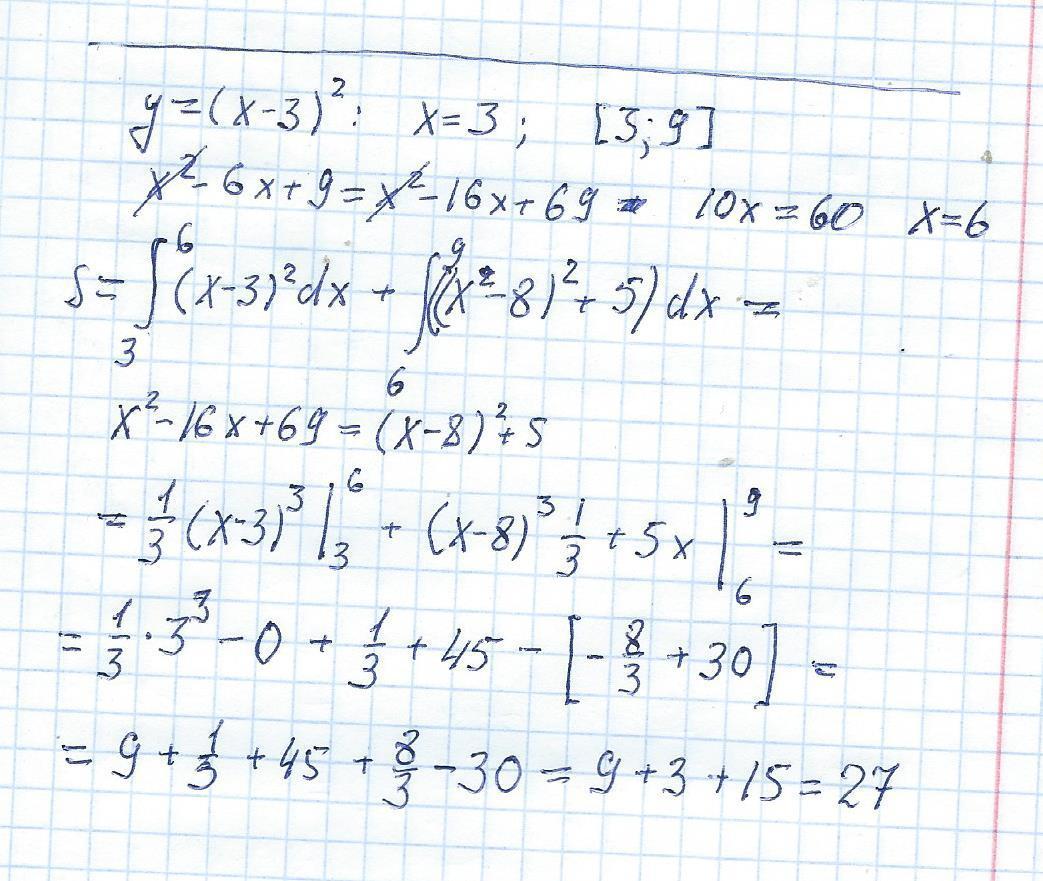 y=(x-3)²: x=3; [3;9]
x²-6x+9=x²-16x+69 - 10x=60 x=6
S=∫₃⁶(x-3)²dx + ∫₆⁹((x²-8)²+5)dx =
x²-16x+69=(x-8)²+5
= 1/3 (x-3)³|₃⁶ + (x-8)³ 1/3 + 5x |₆⁹ =
= 1/3 · 3³ - 0 + 1/3 + 45 - [-8/3 + 30] =
= 9 + 1/3 + 45 + 8/3 - 30 = 9+3+15=27